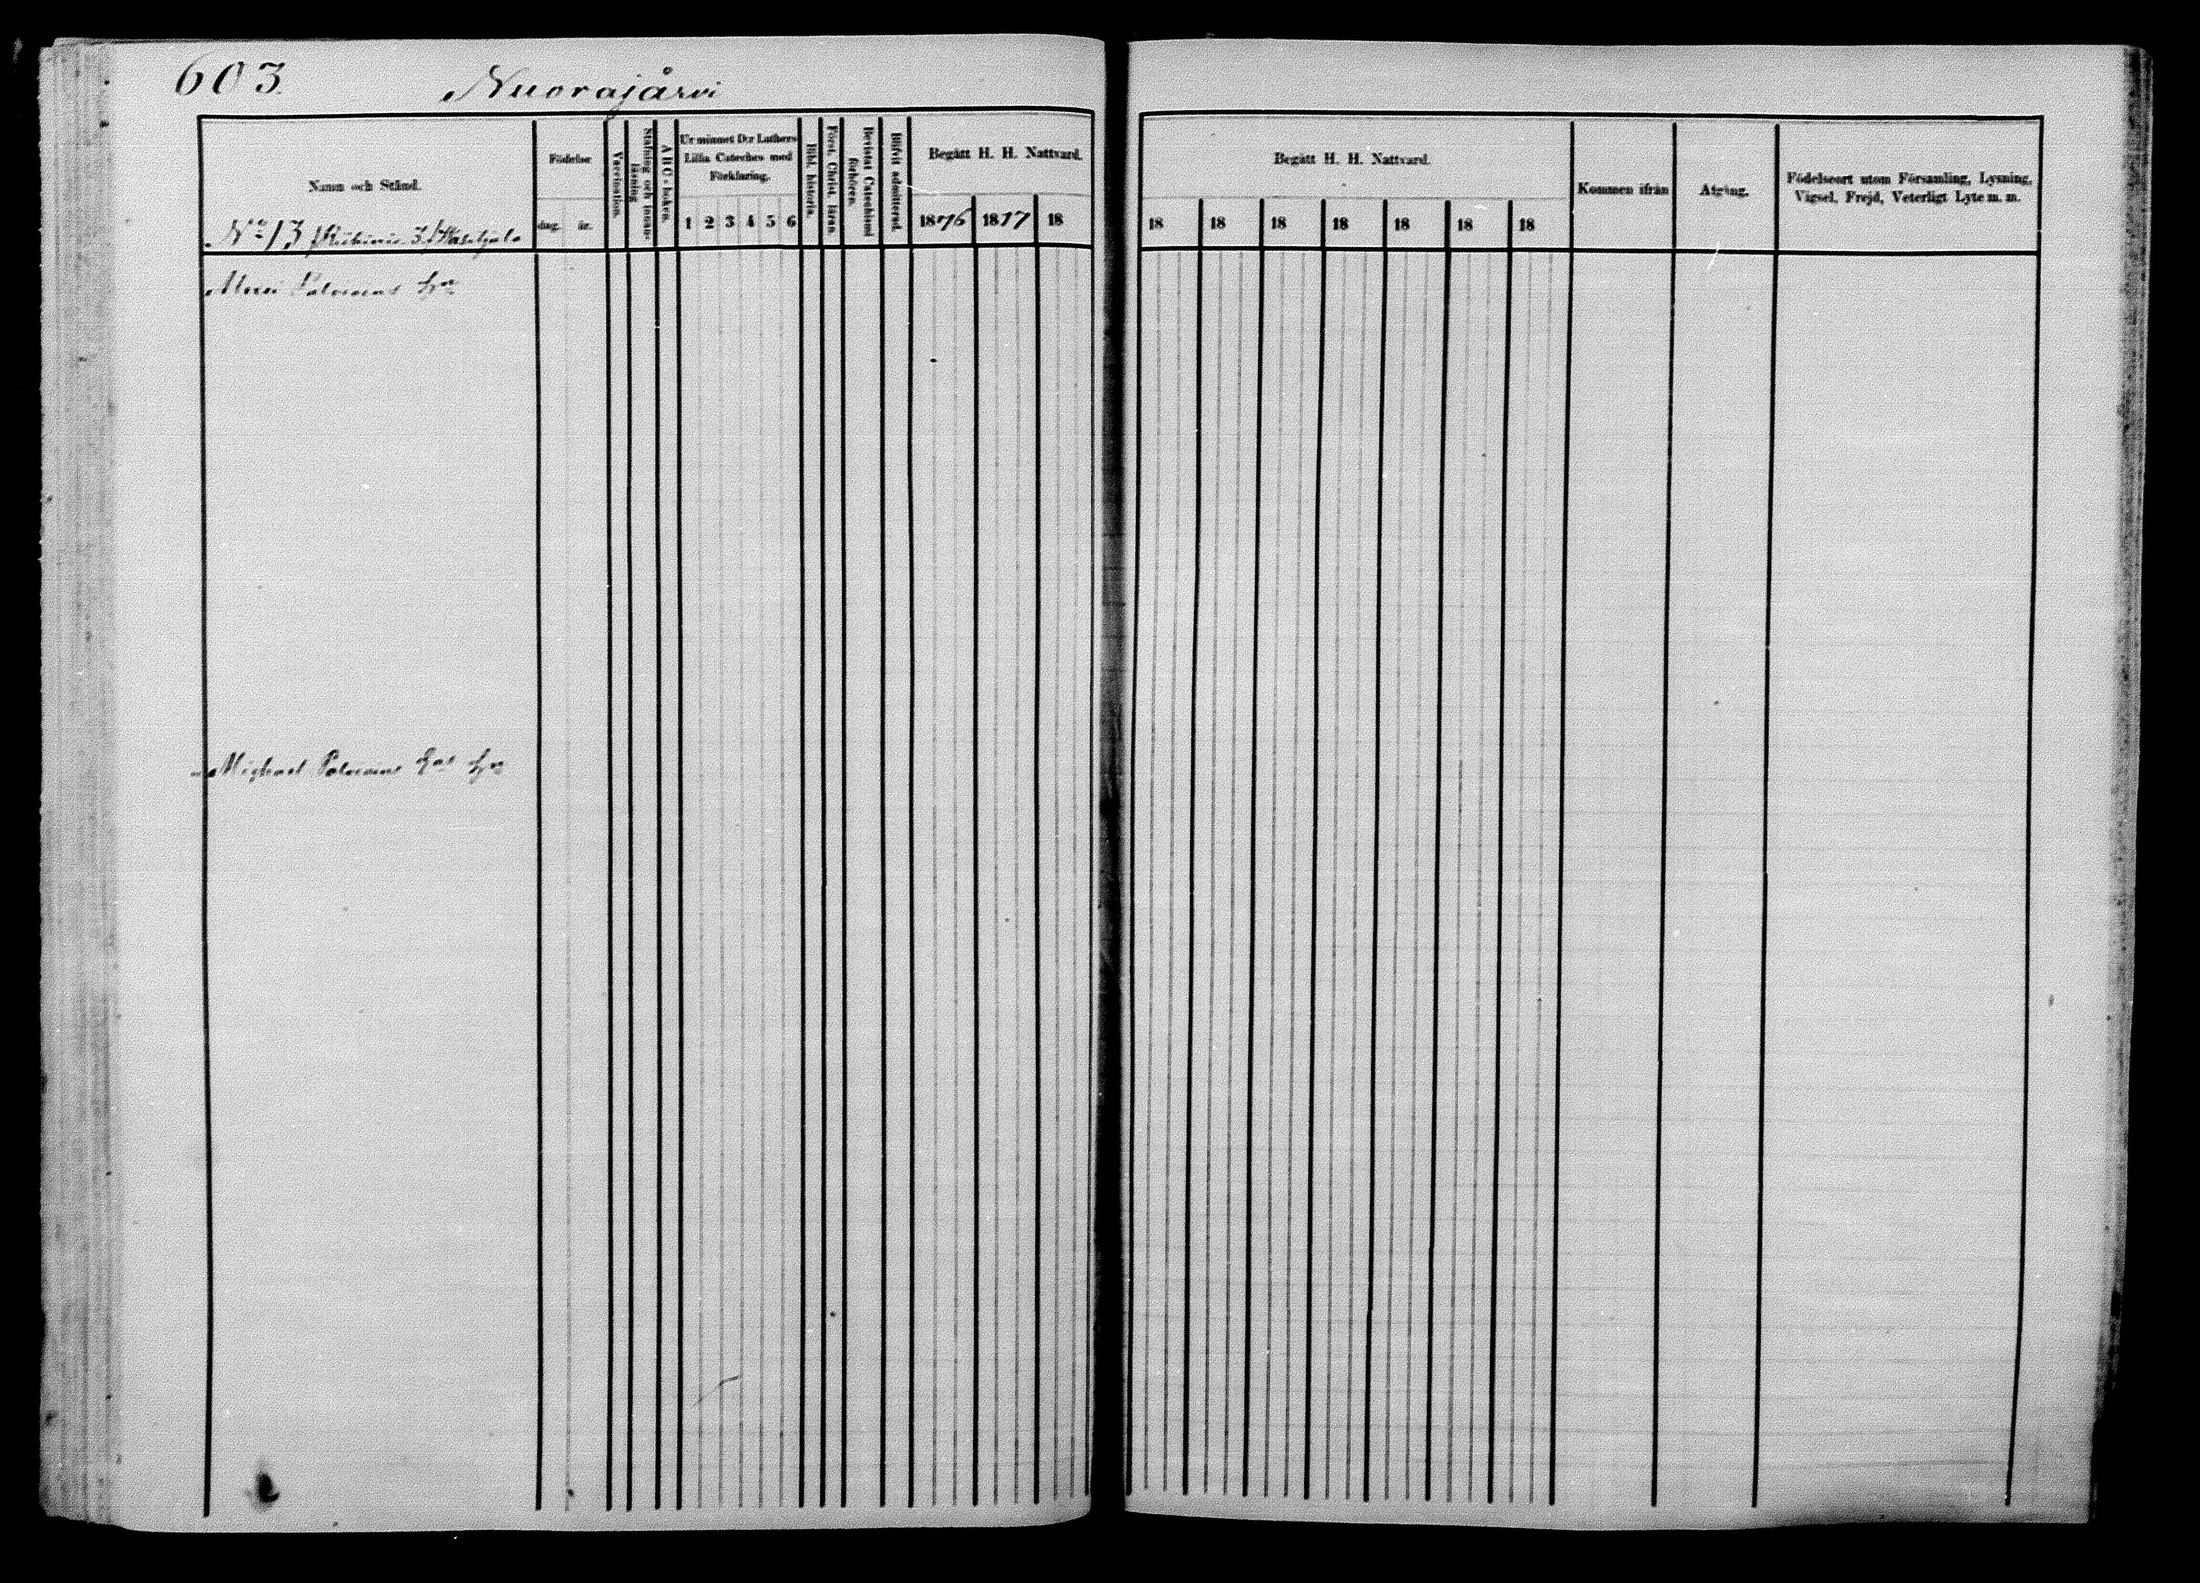 603.
Nuorajärvi
Namn och Stånd.
Födelse
dag. år.
Vaccination.
Stafning och innanläsning
A B C-boken.
Ur minnet D:r Luthers Lilla Cateches med Förklaring.
1 2 3 4 5 6
Bibl. historia.
Först. Christ. läran.
Bevistat Catechismi förhören.
Blifvit admitterad.
Begått H. H. Nattvard.
1876 1877 18
No 13
Michael
Begått H. H. Nattvard.
18 18 18 18 18 18 18
Kommen ifrån
Afgång.
Födelseort utom Församling, Lysning,
Vigsel, Frejd, Veterligt Lyte m. m.